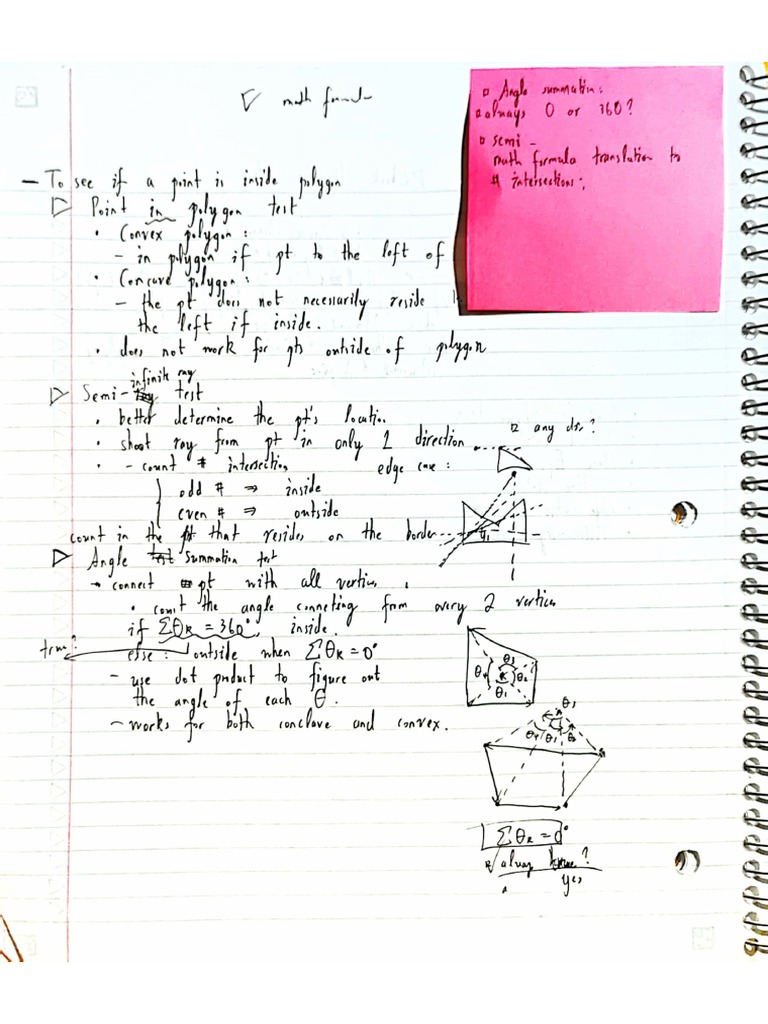 math formula
□ Angle summation:
□ always 0 or 360?
□ semi -
math formula translation to
# intersections:
- To see if a point is inside polygon
▷ Point in polygon test
• Convex polygon:
- in polygon if pt to the left of
• Concave polygon:
- the pt does not necessarily reside
the left if inside.
• does not work for pts outside of polygon
infinite ray
▷ Semi- test
• better determine the pt's location
• shoot ray from pt in only 1 direction
any dir?
• - count # intersection
edge case:
odd # ⇒ inside
even # ⇒ outside
count in the pt that resides on the border
▷ Angle summation test
→ connect pt with all vertices
• count the angle conneting from every 2 vertices
if ΣθR = 360° inside.
true?
else: outside when ΣθR = 0°
- use dot product to figure out
the angle of each θ.
- works for both conclave and convex.
θ3
θ4 θ2
θ1
θ3
θ4 θ1 θ2
ΣθR = 0°
always true?
yes